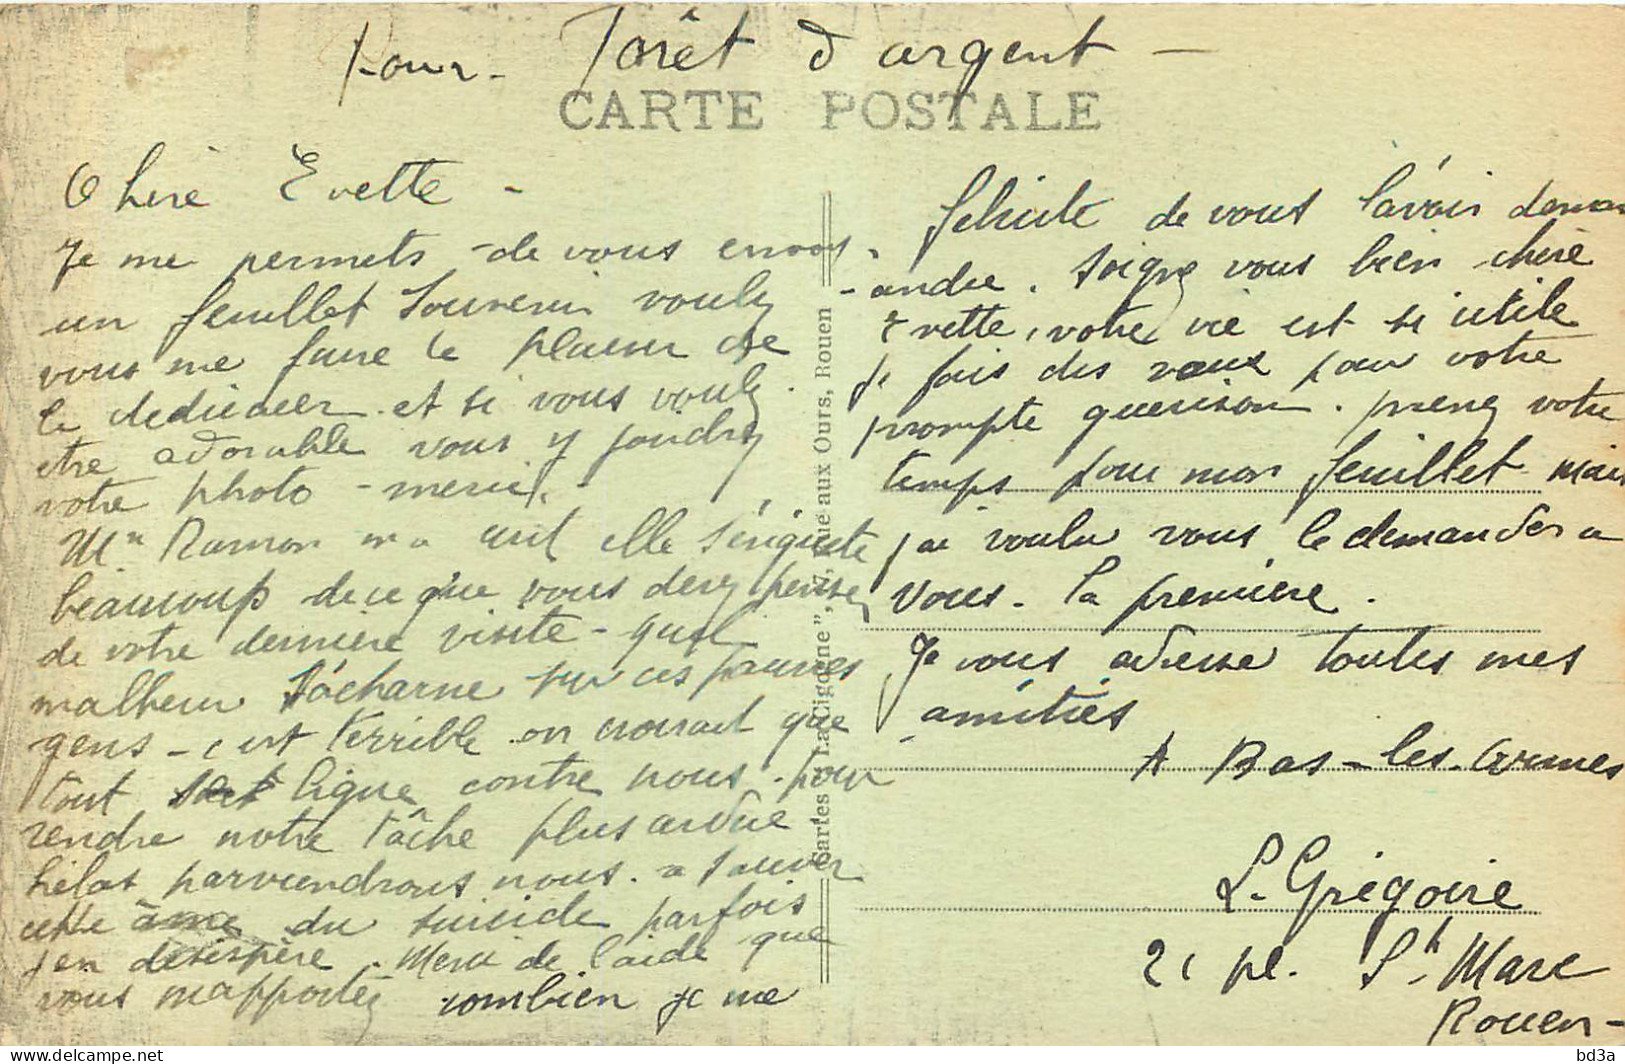 Pour - Forêt d'argent -
CARTE POSTALE
Chère Evette -
Je me permets de vous envoy-
un feuillet souvenir voulez
vous me faire le plaisir de
le dedicacer. et si vous voulez
etre adorable vous y joindrez
votre photo - merci.
Mme Ramon m'a dit elle s'inquiete
beaucoup de ce que vous devez penser
de votre derniere visite - quel
malheur s'acharne sur ces pauvres
gens - c'est terrible on croirait que
tout se ligue contre nous. pour
rendre notre tâche plus ardue
hélas parviendrons nous. a sauver
cette âme du suicide parfois
j'en désespère. Merci de l'aide que
vous m'apportez combien je me
Cartes "La Cigogne", 17, Rue aux Ours, Rouen
félicite de vous l'avoir deman
-andée. Soignez vous bien chère
Evette, votre vie est si utile
je fais des vœux pour votre
prompte guerison. prenez votre
temps pour mon feuillet mais
j'ai voulu vous le demander a
vous. la première.
Je vous adresse toutes mes
amitiés
A Bas-les-Armes
L. Grégoire
21 pl. St Marc
Rouen -
bd3a